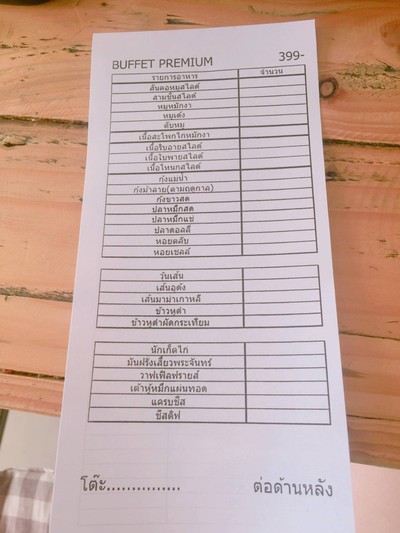 BUFFET PREMIUM 399-
รายการอาหาร จำนวน
สันคอหมูสไลด์
สามชั้นสไลด์
หมูหมักงา
หมูเด้ง
ตับหมู
เนื้อสะโพกไก่หมักงา
เนื้อริบอายสไลด์
เนื้อใบพายสไลด์
เนื้อโหนกสไลด์
กุ้งแม่น้ำ
กุ้งม้าลาย(ตามฤดูกาล)
กุ้งขาวสด
ปลาหมึกสด
ปลาหมึกแช่
ปลาดอลลี่
หอยตลับ
หอยเชลล์
วุ้นเส้น
เส้นอุด้ง
เส้นมาม่าเกาหลี
ข้าวหูดำ
ข้าวหูดำผัดกระเทียม
นักเก็ตไก่
มันฝรั่งเสี้ยวพระจันทร์
วาฟเฟิลฟรายส์
เต้าหู้หมึกแผ่นทอด
แครบชีส
ชีสดิฟ
โต๊ะ............... ต่อด้านหลัง